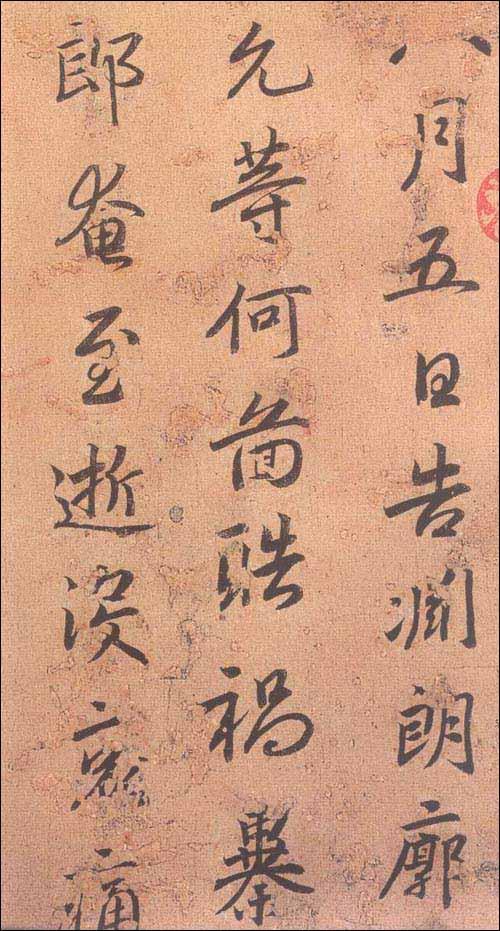 八月五日告淵朗廓
允等何啚酷禍暴
郎奄至逝沒哀痛